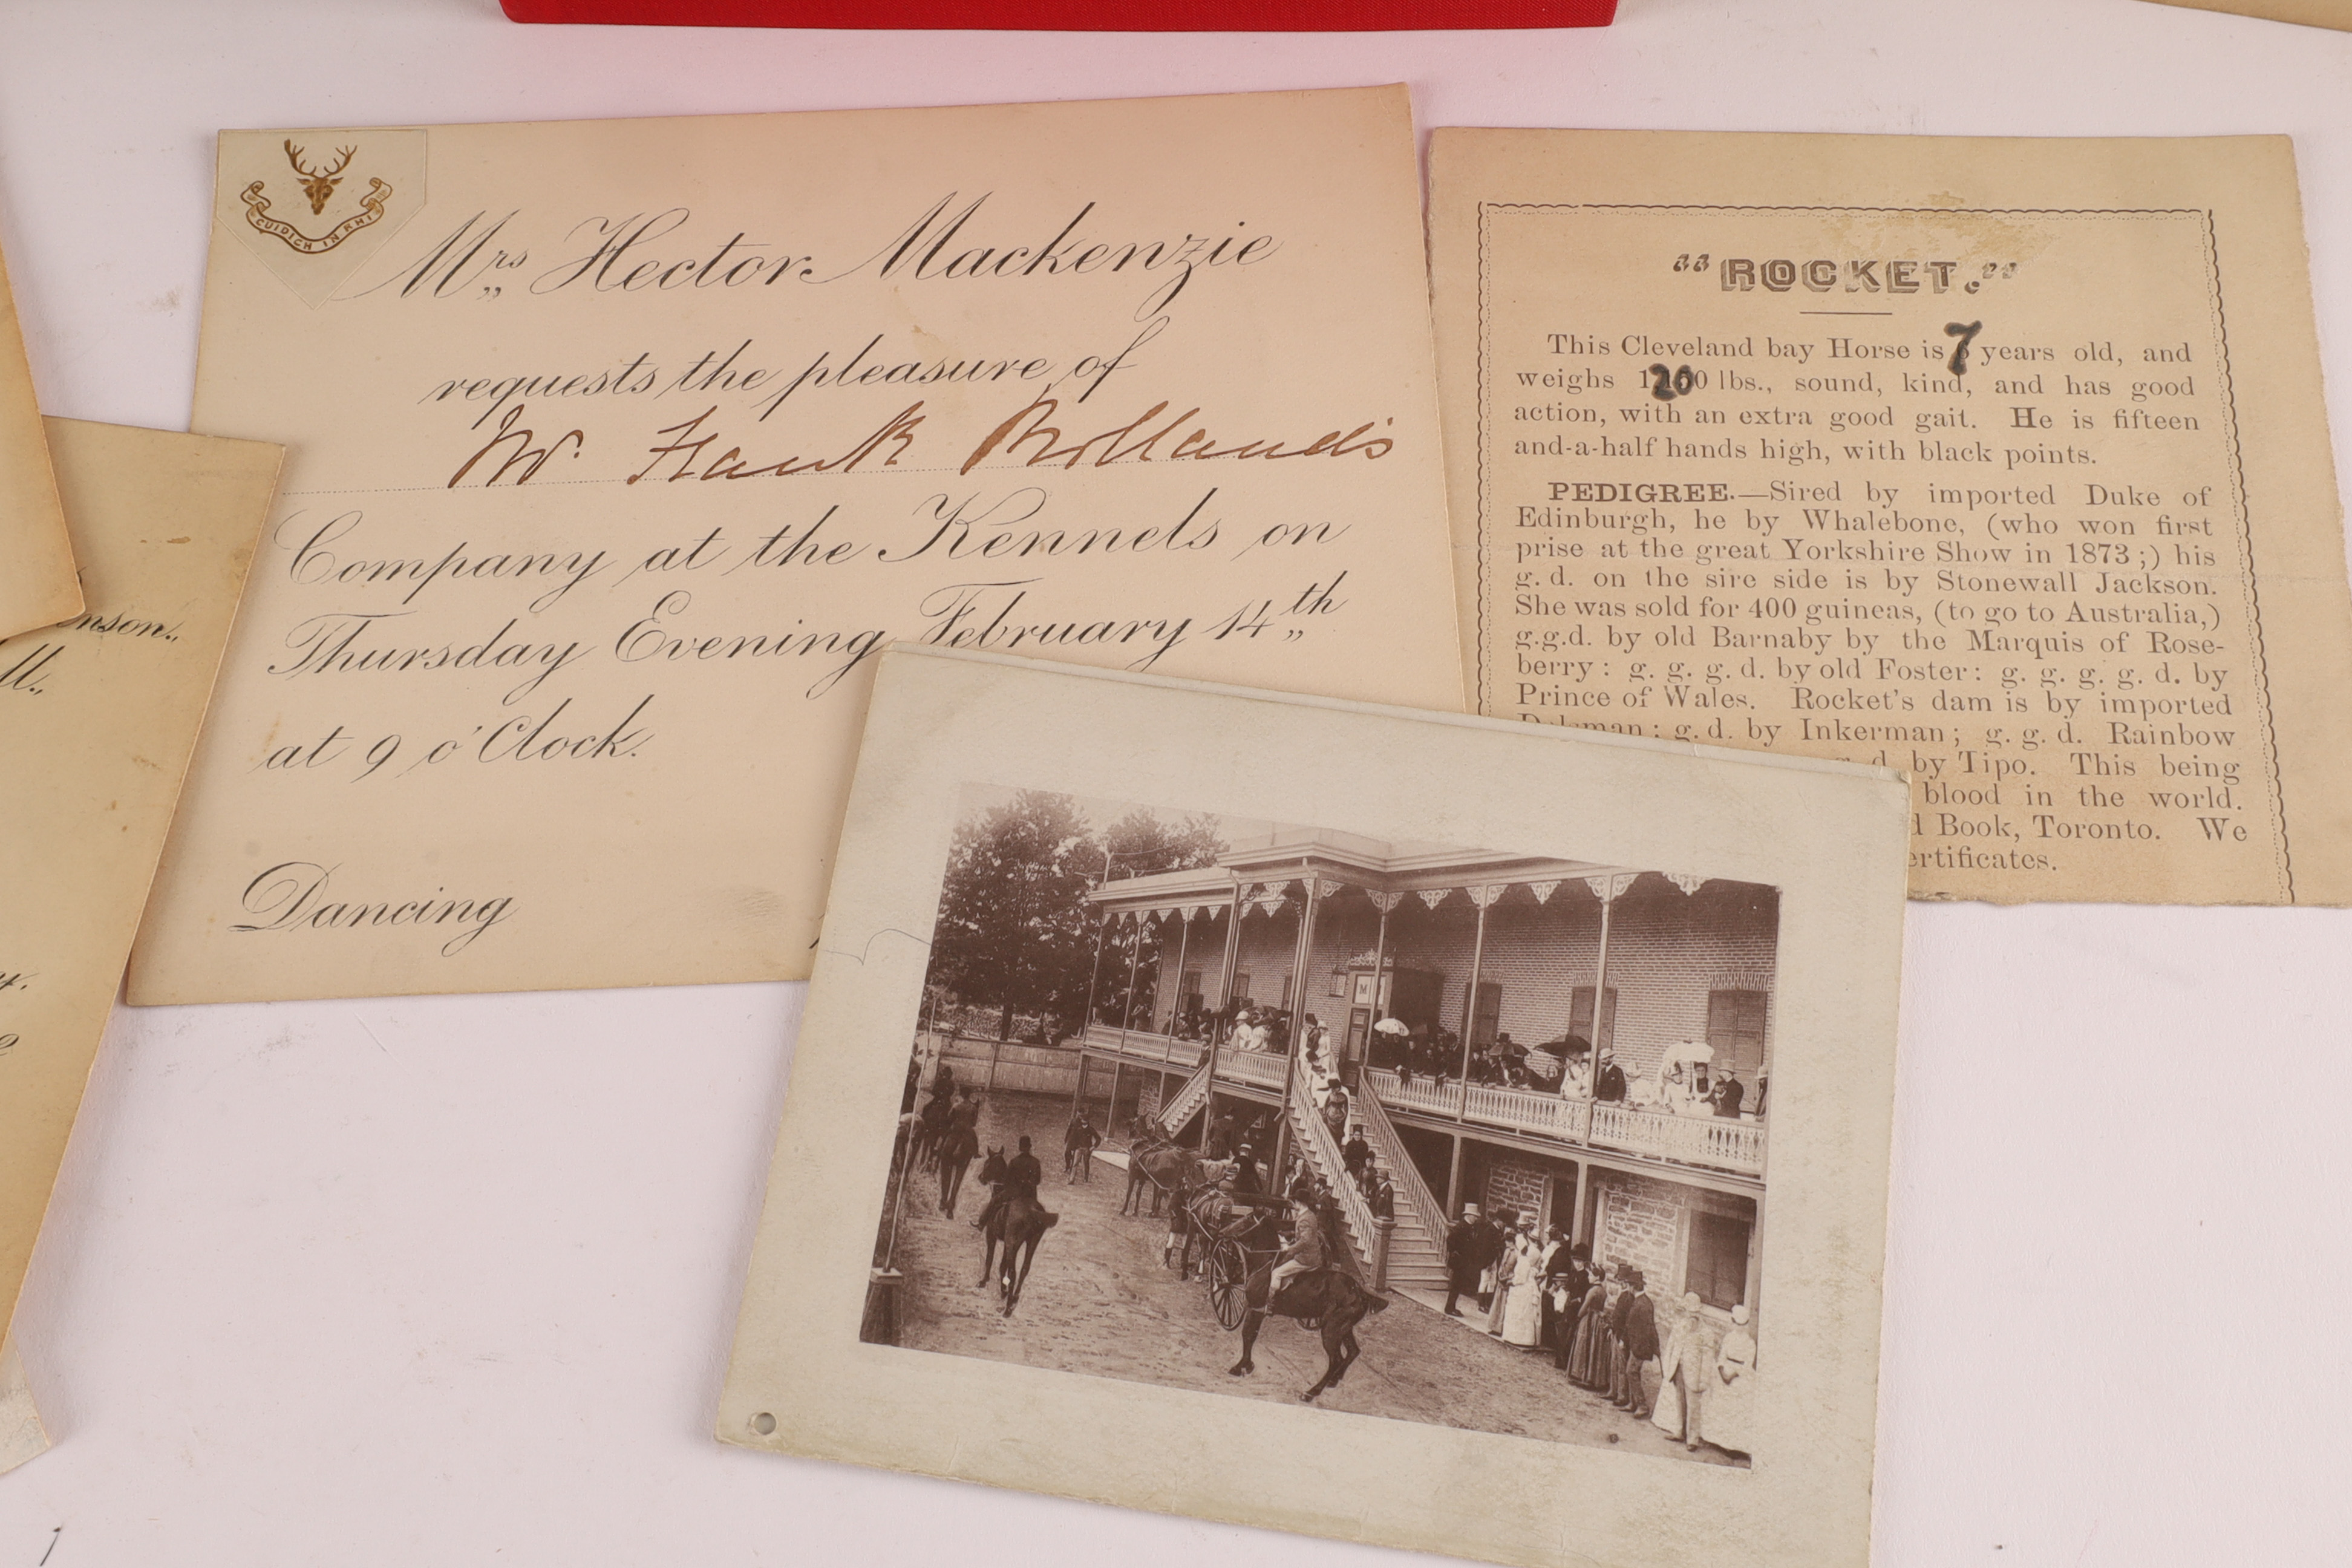 CUIDICH IN RHI
Mrs Hector Mackenzie
requests the pleasure of
Mr. Frank Rollands
Company at the Kennels on
Thursday Evening February 14th
at 9 o'Clock.
Dancing
"ROCKET."
This Cleveland bay Horse is 7 years old, and
weighs 1200 lbs., sound, kind, and has good
action, with an extra good gait. He is fifteen
and-a-half hands high, with black points.
PEDIGREE.—Sired by imported Duke of
Edinburgh, he by Whalebone, (who won first
prise at the great Yorkshire Show in 1873;) his
g. d. on the sire side is by Stonewall Jackson.
She was sold for 400 guineas, (to go to Australia,)
g.g.d. by old Barnaby by the Marquis of Rose-
berry: g. g. g. d. by old Foster: g. g. g. g. d. by
Prince of Wales. Rocket's dam is by imported
g. d. by Inkerman; g. g. d. Rainbow
d by Tipo. This being
blood in the world.
Book, Toronto. We
ertificates.
nson.
M